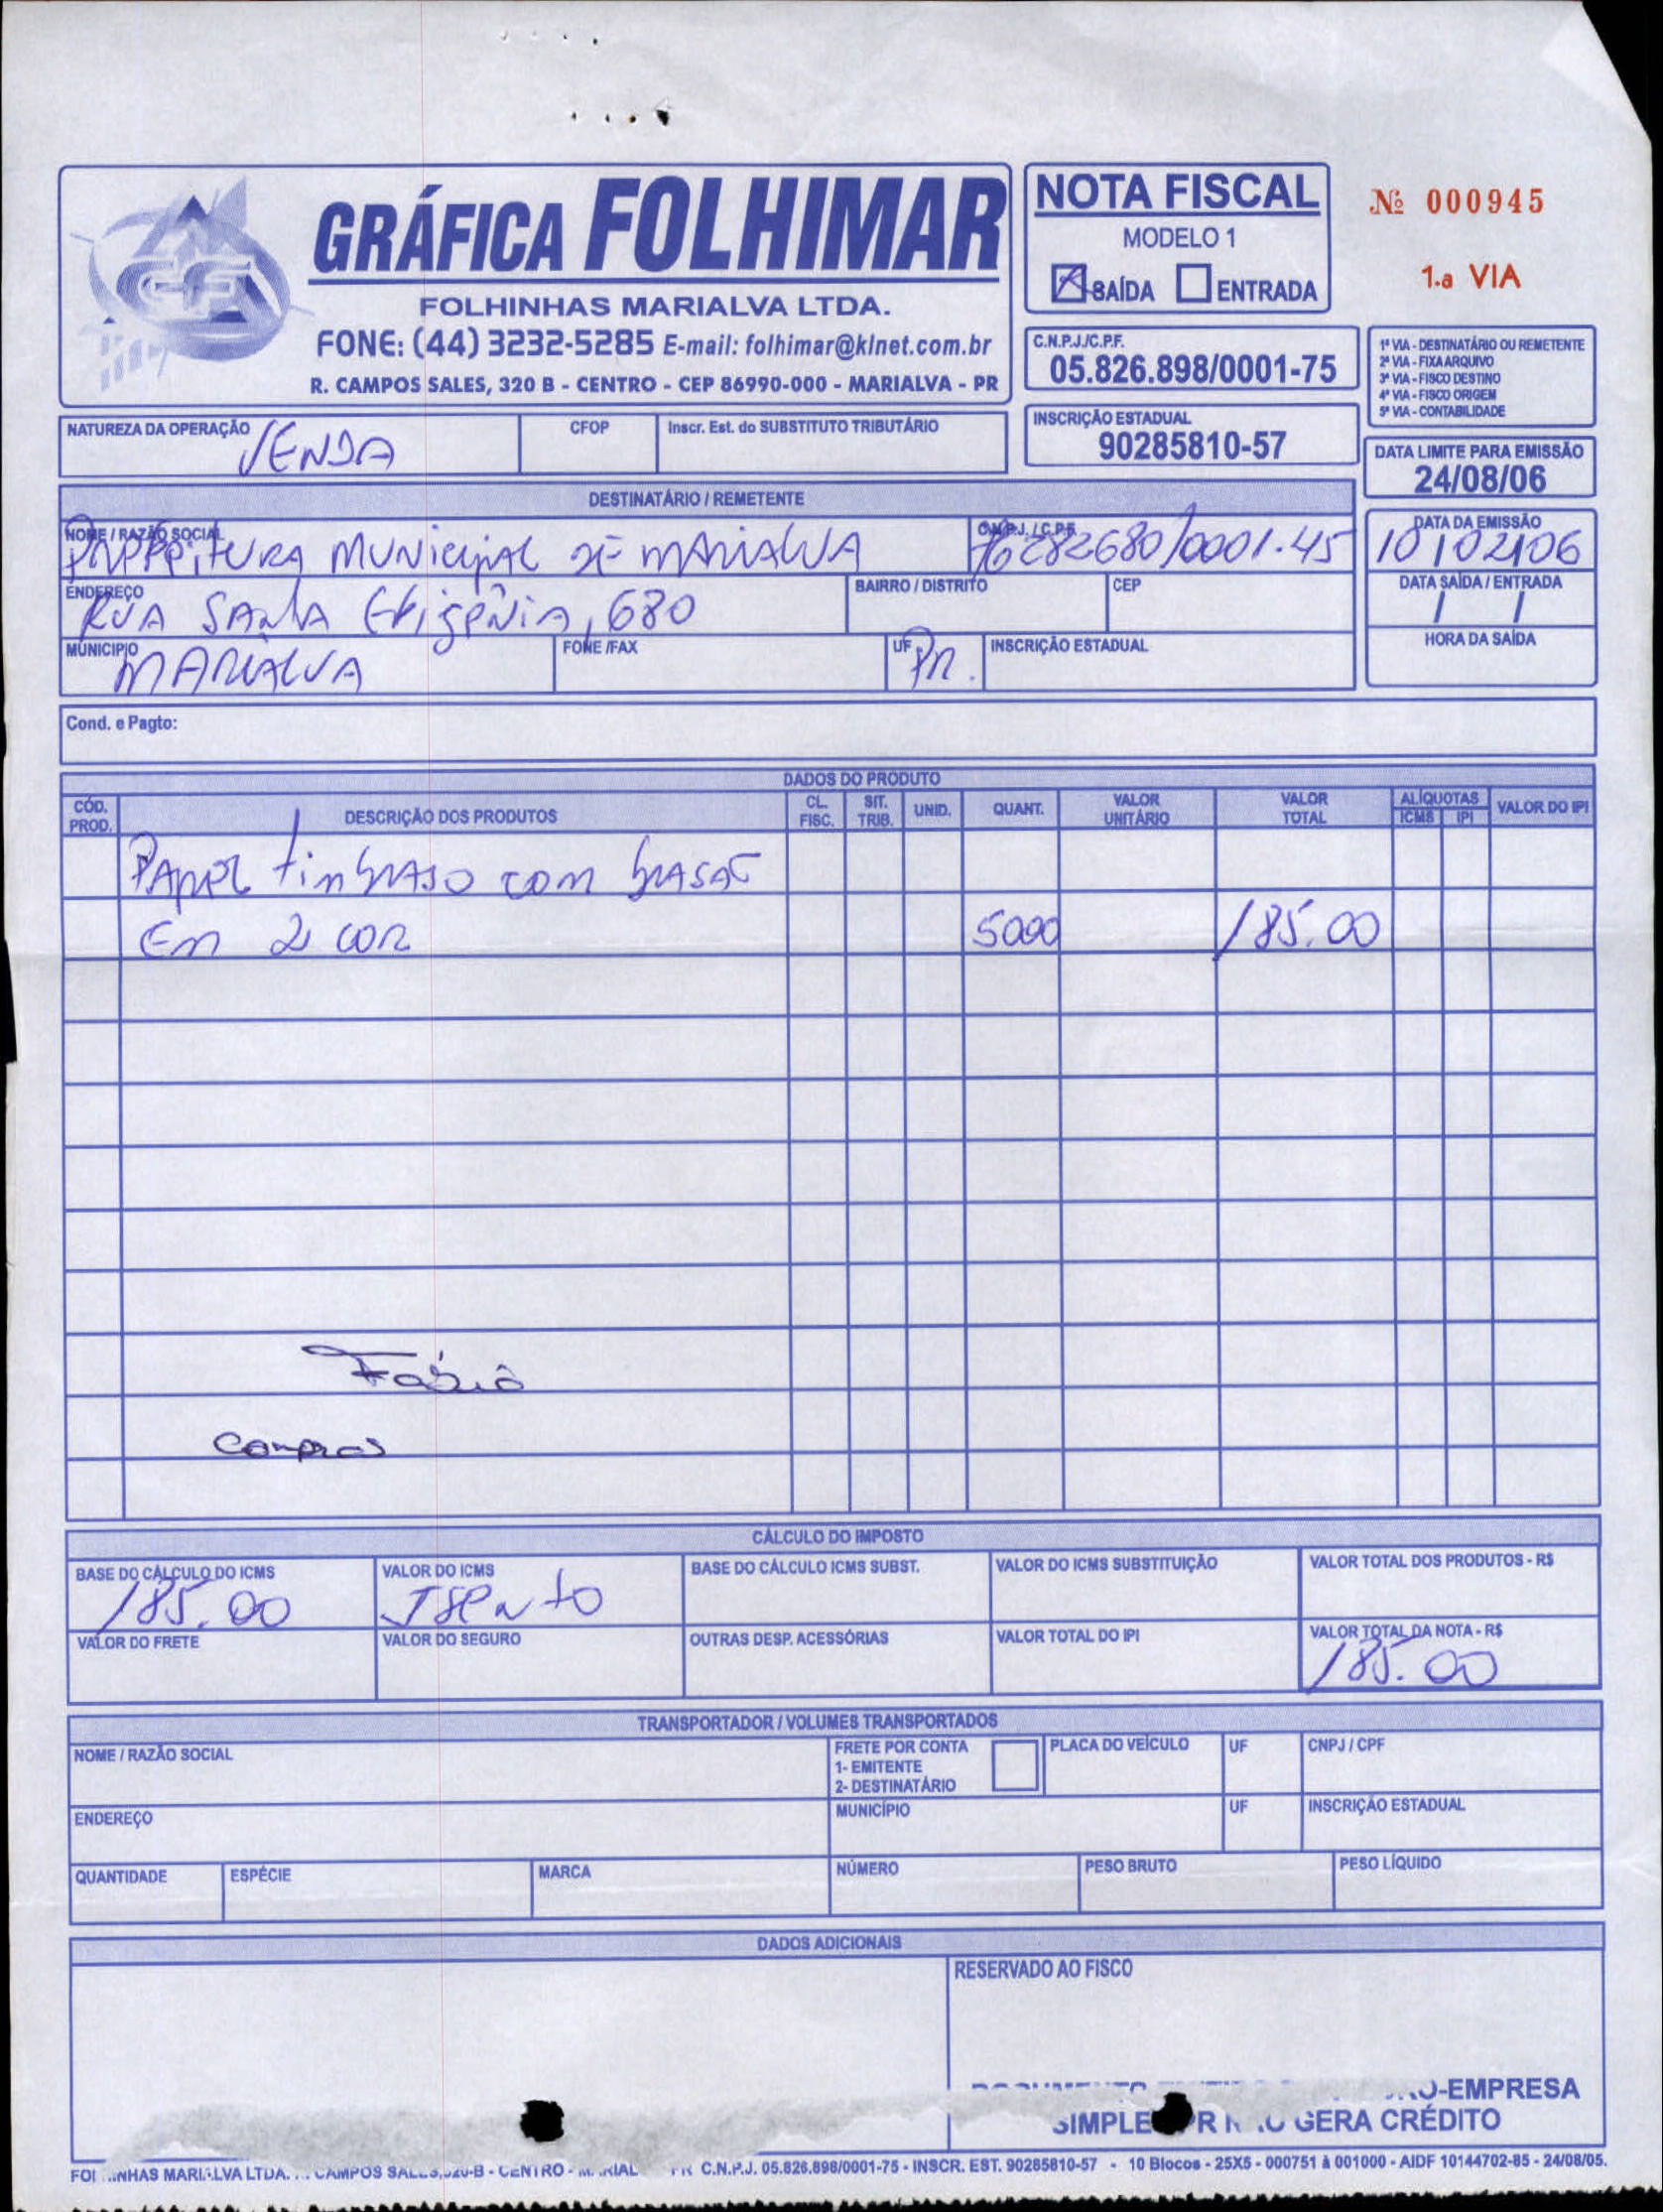 GRÁFICA FOLHIMAR
FOLHINHAS MARIALVA LTDA.
FONE: (44) 3232-5285 E-mail: folhimar@klnet.com.br
R. CAMPOS SALES, 320 B - CENTRO - CEP 86990-000 - MARIALVA - PR
NOTA FISCAL
MODELO 1
SAÍDA ENTRADA
Nº 000945
1.a VIA
C.N.P.J./C.P.F.
05.826.898/0001-75
INSCRIÇÃO ESTADUAL
90285810-57
1ª VIA - DESTINATÁRIO OU REMETENTE
2ª VIA - FIXA ARQUIVO
3ª VIA - FISCO DESTINO
4ª VIA - FISCO ORIGEM
5ª VIA - CONTABILIDADE
DATA LIMITE PARA EMISSÃO
24/08/06
NATUREZA DA OPERAÇÃO VENDA CFOP Inscr. Est. do SUBSTITUTO TRIBUTÁRIO
DESTINATÁRIO / REMETENTE
NOME / RAZÃO SOCIAL C.N.P.J. / C.P.F. DATA DA EMISSÃO
MUNICIPAL DE MARIALVA 76282680/0001-45 10/02/06
ENDEREÇO BAIRRO / DISTRITO CEP DATA SAÍDA / ENTRADA
RUA SANTA EFIGÊNIA, 680 / /
MUNICIPIO FONE /FAX UF INSCRIÇÃO ESTADUAL HORA DA SAÍDA
MARIALVA PR.
Cond. e Pagto:
DADOS DO PRODUTO
CÓD. PROD. DESCRIÇÃO DOS PRODUTOS CL. FISC. SIT. TRIB. UNID. QUANT. VALOR UNITÁRIO VALOR TOTAL ALÍQUOTAS ICMS IPI VALOR DO IPI
PAPEL timbRADO com
Em 2 COR 5000 185.00
Fábio
Compras
CÁLCULO DO IMPOSTO
BASE DO CÁLCULO DO ICMS VALOR DO ICMS BASE DO CÁLCULO ICMS SUBST. VALOR DO ICMS SUBSTITUIÇÃO VALOR TOTAL DOS PRODUTOS - R$
185.00 Isento
VALOR DO FRETE VALOR DO SEGURO OUTRAS DESP. ACESSÓRIAS VALOR TOTAL DO IPI VALOR TOTAL DA NOTA - R$
185.00
TRANSPORTADOR / VOLUMES TRANSPORTADOS
NOME / RAZÃO SOCIAL FRETE POR CONTA PLACA DO VEÍCULO UF CNPJ / CPF
1- EMITENTE
2- DESTINATÁRIO
ENDEREÇO MUNICÍPIO UF INSCRIÇÃO ESTADUAL
QUANTIDADE ESPÉCIE MARCA NÚMERO PESO BRUTO PESO LÍQUIDO
DADOS ADICIONAIS
RESERVADO AO FISCO
-EMPRESA
GERA CRÉDITO
C.N.P.J. 05.826.898/0001-75 - INSCR. EST. 90285810-57 - 10 Blocos - 25X5 - 000751 à 001000 - AIDF 10144702-85 - 24/08/05.